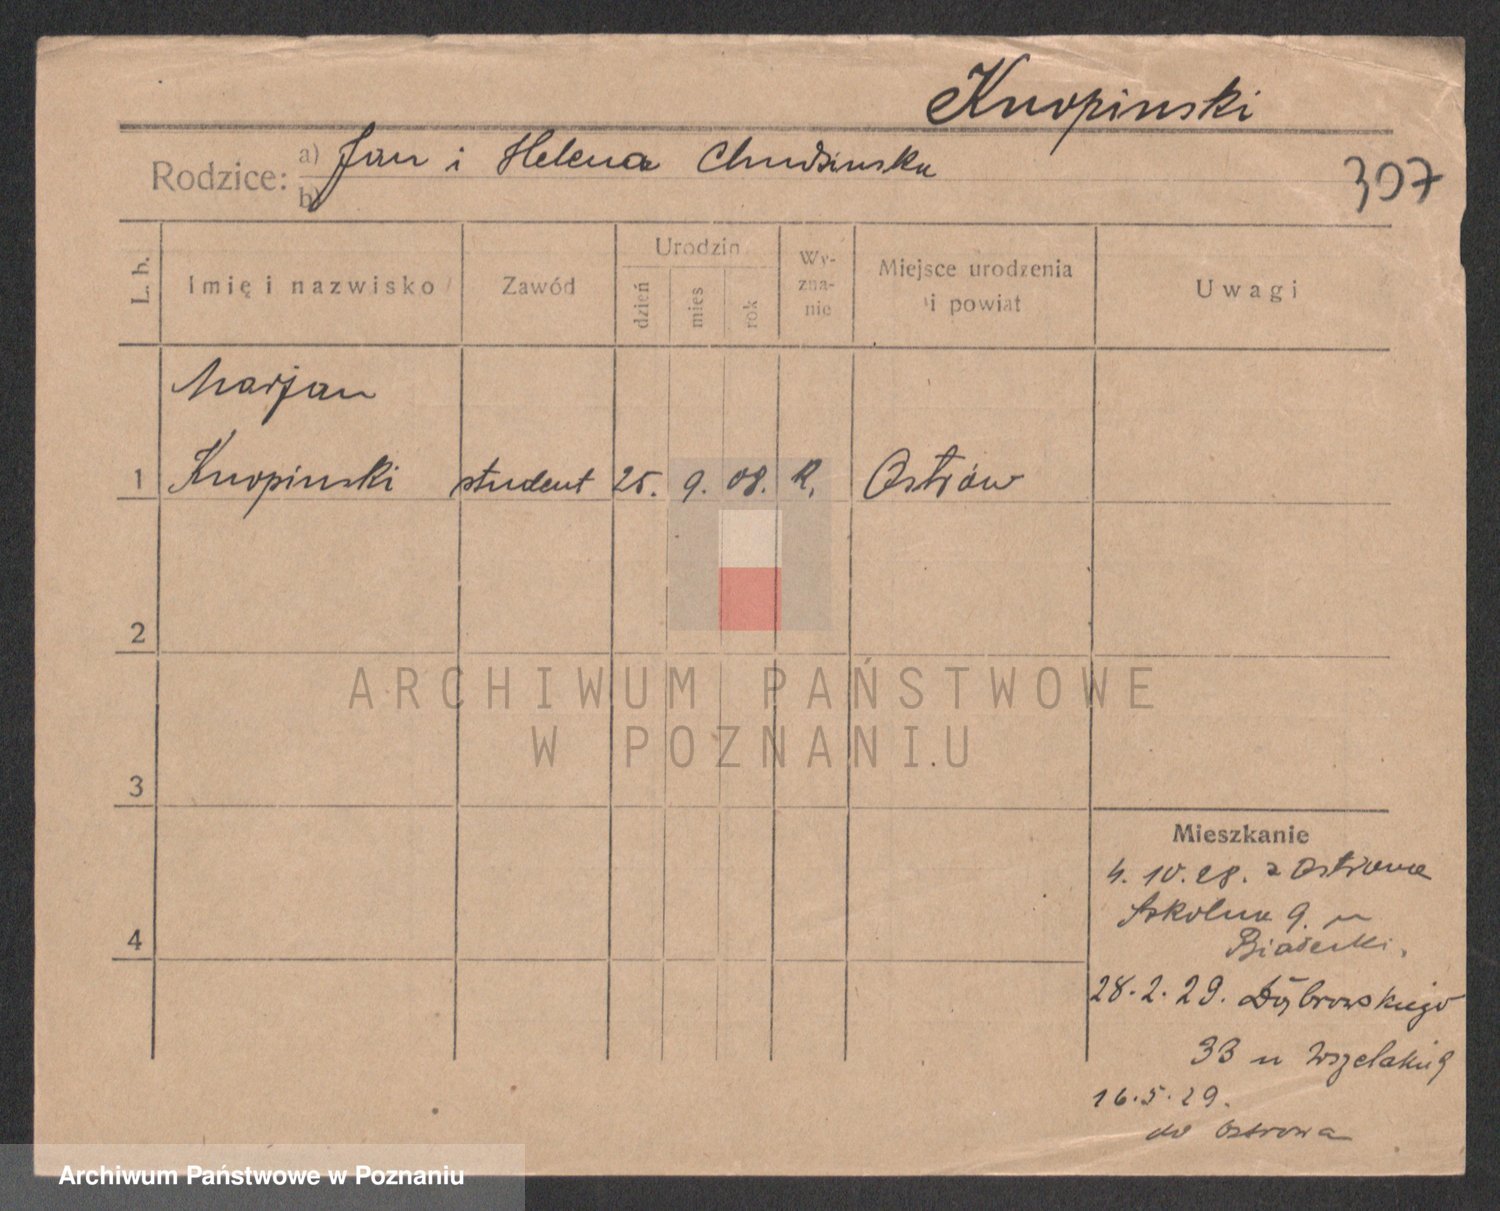 Knopinski
Rodzice: a) Jan i Helena Chudzinska
b)
307
L. b.
Imię i nazwisko
Zawód
Urodzin
dzień
mies
rok
Wy-
zna-
nie
Miejsce urodzenia
i powiat
Uwagi
Marjan
1 Knopinski student 25. 9. 08. R. Ostrów
2
3
4
Mieszkanie
4. 10. 28. z Ostrowa
Szkolna 9. u
Białecki.
28. 2. 29. Dąbrowskiego
33 u
16. 5. 29.
do Ostrowa
ARCHIWUM PAŃSTWOWE
W POZNANIU
Archiwum Państwowe w Poznaniu